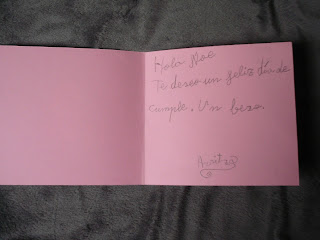 Hola Noe
Te deseo un feliz día de
cumple. Un beso.